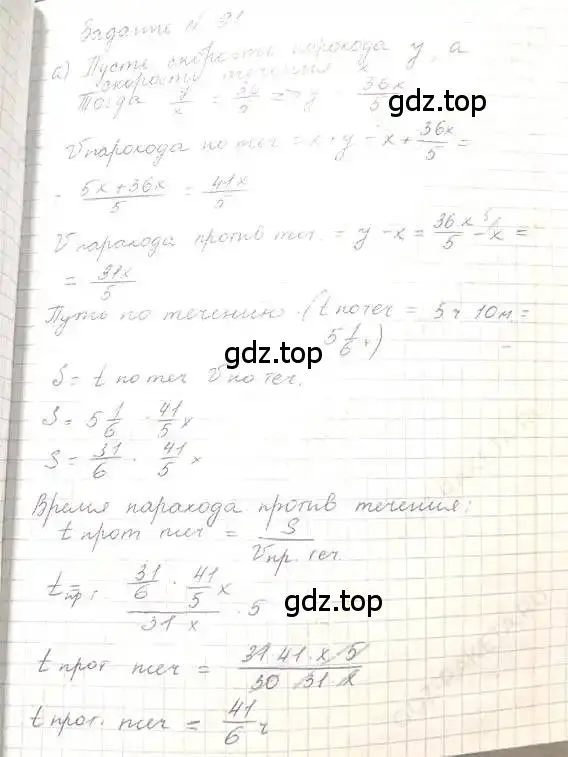 Задание № 31
а) Пусть скорость парохода y, а
скорость течения x
Тогда y/x = 36/5 => y = 36x/5
gdz.top
Vпарохода по теч = x + y = x + 36x/5 =
= (5x+36x)/5 = 41x/5
Vпарохода против теч. = y - x = 36x/5 - x =
= 31x/5
Путь по течению (t по теч = 5ч 10м =
5 1/6 ч)
gdz.top
S = t по теч Vпо теч.
S = 5 1/6 · 41/5 x
S = 31/6 · 41/5 x
Время парахода против течения:
t прот теч = S/Vпр. теч.
t пр т. = (31/6 · 41/5 x)/(31 x) · 5
gdz.top
t прот теч = (31·41·x·5)/(30·31·x)
t прот. теч = 41/6 ч